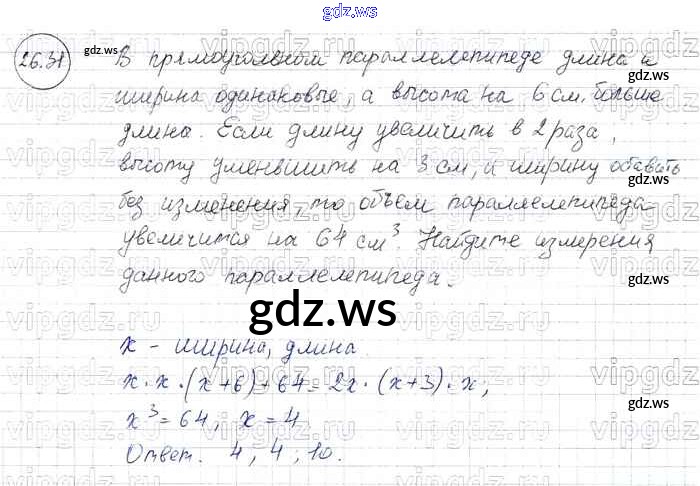 gdz.ws
26.31
gdz.ws
В прямоугольном параллелепипеде длина и
ширина одинаковые, а высота на 6 см. больше
длины. Если длину увеличить в 2 раза,
высоту уменьшить на 3 см, и ширину оставить
без изменения, то объем параллелепипеда
увеличится на 64 см³. Найдите измерения
данного параллелепипеда.
gdz.ws
x - ширина, длина.
x · x · (x+6) + 64 = 2x · (x+3) · x;
x³ = 64, x = 4.
Ответ. 4, 4; 10.
gdz.ws
gdz.ws